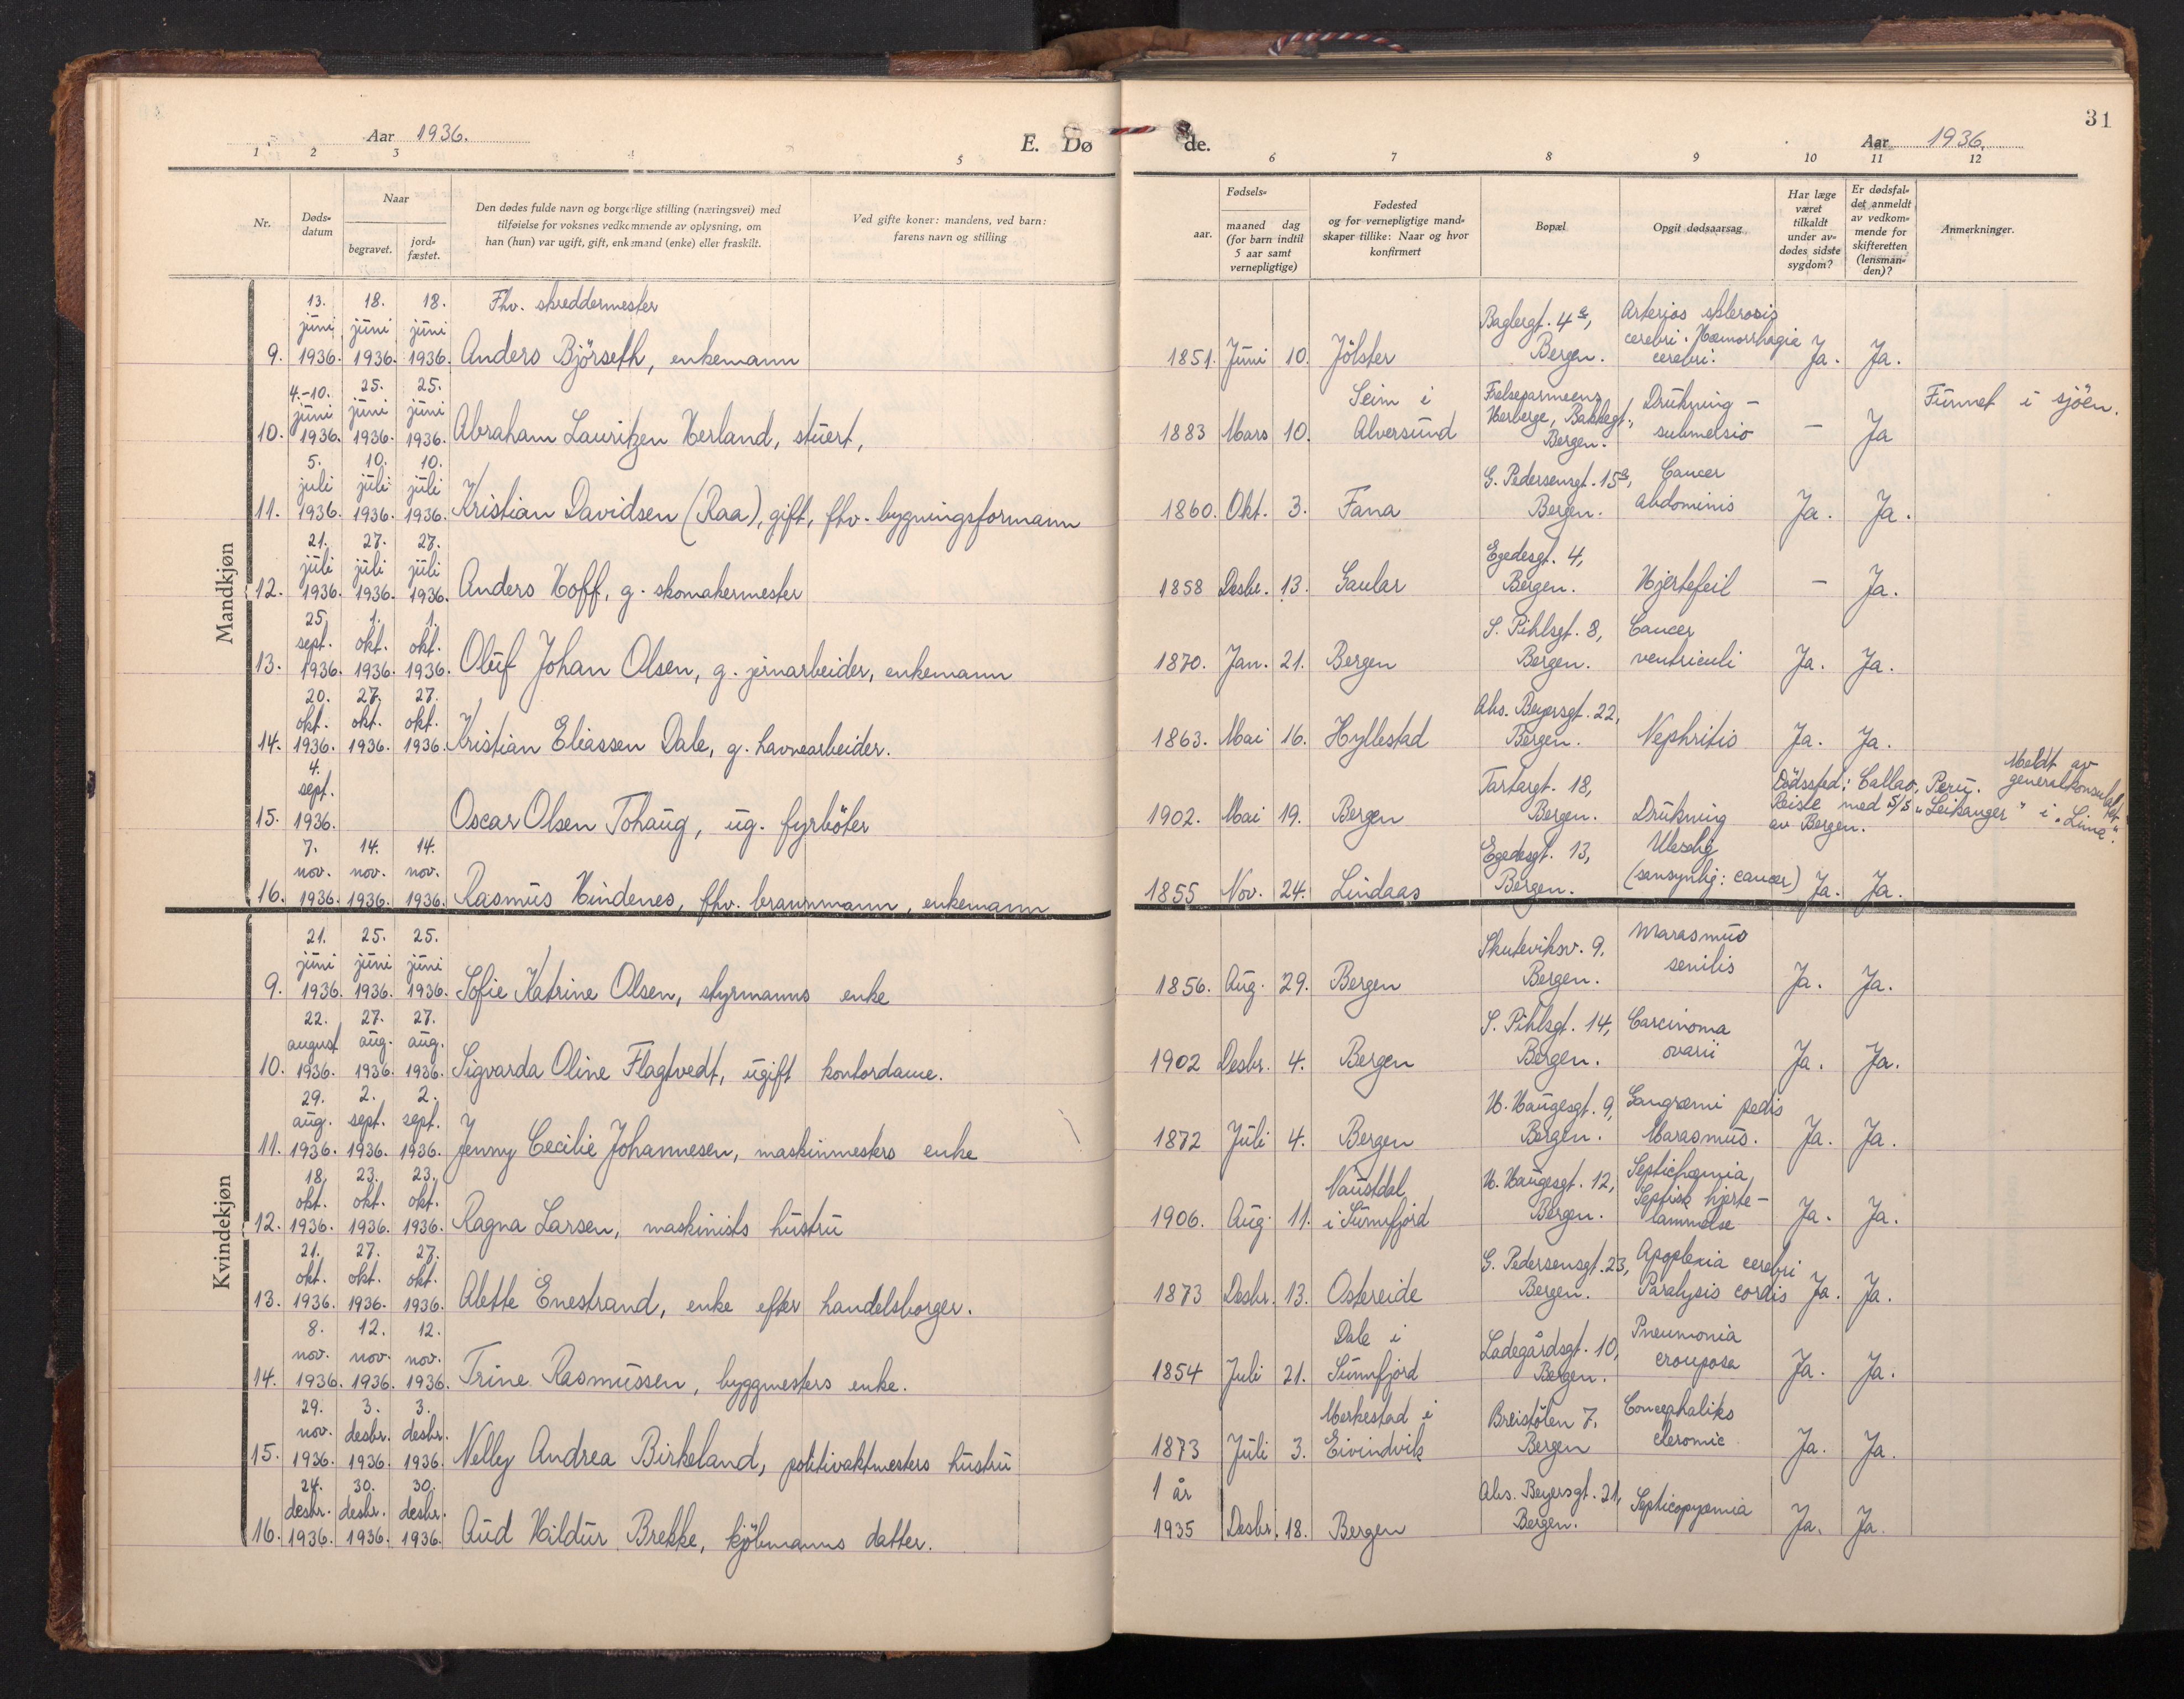 Aar 1936.
E. Dø
de.
Aar 1936.
31
1 2 3 4 5 6 7 8 9 10 11 12
Nr.
Døds-
datum
Naar
begravet.
jord-
fæstet.
Den dødes fulde navn og borgerlige stilling (næringsvei) med
tilføielse for voksnes vedkommende av oplysning, om
han (hun) var ugift, gift, enkemand (enke) eller fraskilt.
Ved gifte koner: mandens, ved barn:
farens navn og stilling
Fødsels-
aar.
maaned dag
(for barn indtil
5 aar samt
vernepligtige)
Fødested
og for vernepligtige mand-
skaper tillike: Naar og hvor
konfirmert
Bopæl
Opgit dødsaarsag
Har læge
været
tilkaldt
under av-
dødes sidste
sygdom?
Er dødsfal-
det anmeldt
av vedkom-
mende for
skifteretten
(lensman-
den)?
Anmerkninger.
Mandkjøn
13. 18. 18. Fhv. skreddermester Baglergt. 4a, Arterios sklerosis
juni juni juni cerebri. Hæmorrhagia
9. 1936. 1936. 1936. Anders Björseth, enkemann 1851. Juni 10. Jölster Bergen. cerebri. Ja. Ja.
4.-10. 25. 25. Seim i Frelsesarmeens Drukning - Funnet i sjöen.
juni juni juni Herberge, Bakkegt.,
10. 1936. 1936. 1936. Abraham Lauritzen Herland, stuert, 1883 Mars 10. Alversund Bergen. submelsio - Ja
5. 10. 10. G. Pedersensgt. 15a, Cancer
juli juli juli
11. 1936. 1936. 1936. Kristian Davidsen (Raa), gift, fhv. bygningsformann 1860. Okt. 3. Fana Bergen. abdominis Ja. Ja.
21. 27. 27. Egedesgt. 4,
juli juli juli
12. 1936. 1936. 1936. Anders Hoff, g. skomakermester 1858 Desbr. 13. Gaular Bergen. Hjertefeil - Ja.
25. 1. 1. S. Pihlsgt. 8, Cancer
sept. okt. okt.
13. 1936. 1936. 1936. Oluf Johan Olsen, g. jernarbeider, enkemann 1870. Jan. 21. Bergen Bergen. ventriculi Ja. Ja.
20. 27. 27. Abs. Beyersgt. 22,
okt. okt. okt.
14. 1936. 1936. 1936. Kristian Eliassen Dale, g. havnearbeider. 1863. Mai 16. Hyllestad Bergen. Nephritis Ja. Ja.
4. Tartargt. 18, Dödssted: Callao, Peru. Meldt av
sept. Reiste med S/S „Leikanger" generalkonsulatet
15. 1936. Oscar Olsen Tohaug, ug. fyrböter 1902. Mai 19. Bergen Bergen. Drukning av Bergen. i „Lima".
7. 14. 14. Egedesgt. 13, Uleselig
nov. nov. nov.
16. 1936. 1936. 1936. Rasmus Hindenes, fhv. brannmann, enkemann 1855 Nov. 24. Lindaas Bergen. (sansynlig: cancer) Ja. Ja.
Kvindekjøn
21. 25. 25. Skuteviksv. 9, Marasmus
juni juni juni
9. 1936. 1936. 1936. Sofie Katrine Olsen, styrmanns enke 1856. Aug. 29. Bergen Bergen. senilis Ja. Ja.
22. 27. 27. S. Pihlsgt. 14, Carcinoma
august aug. aug.
10. 1936. 1936. 1936. Sigvarda Oline Flagtvedt, ugift kontordame. 1902 Desbr. 4. Bergen Bergen. ovarii Ja. Ja.
29. 2. 2. H. Haugesgt. 9, Gangræni pedis
aug. sept. sept.
11. 1936. 1936. 1936. Jenny Cecilie Johannesen, maskinmesters enke 1872 Juli 4. Bergen Bergen. Marasmus. Ja. Ja.
18. 23. 23. Naustdal H. Haugesgt. 12, Septichæmia,
okt. okt. okt. Septisk hjerte-
12. 1936. 1936. 1936. Ragna Larsen, maskinists hustru 1906. Aug. 11. i Sunnfjord Bergen. lammelse Ja. Ja.
21. 27. 27. G. Pedersensgt. 23, Apoplexia cerebri
okt. okt. okt.
13. 1936. 1936. 1936. Alette Enestrand, enke efter handelsborger. 1873 Desbr. 13. Ostereide Bergen. Paralysis cordis Ja. Ja.
8. 12. 12. Dale i Ladegårdsgt. 10, Pneumonia
nov. nov. nov.
14. 1936. 1936. 1936. Trine Rasmussen, byggmesters enke. 1854 Juli 21. Sunnfjord Bergen. crouposa Ja. Ja.
29. 3. 3. Merkestad i Breistölen 7,
nov. desbr. desbr.
15. 1936. 1936. 1936. Nelly Andrea Birkeland, politivaktmesters hustru 1873 Juli 3. Eivindvik Bergen Ja. Ja.
24. 30. 30. 1 år Abs. Beyersgt. 21,
desbr. desbr. desbr.
16. 1936. 1936. 1936. Aud Hildur Brekke, kjöbmanns datter. 1935 Desbr. 18. Bergen Bergen. Septicopyæmia Ja. Ja.